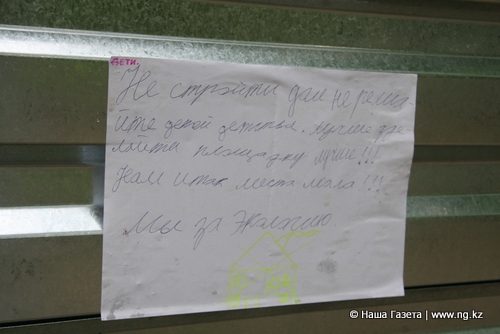 Дети.
Не стройти дом не реша-
йте детей детства. лучше зде-
лайти площадку лучше!!!
Нам и так места мала!!!
Мы за Экалогию
© Наша Газета | www.ng.kz